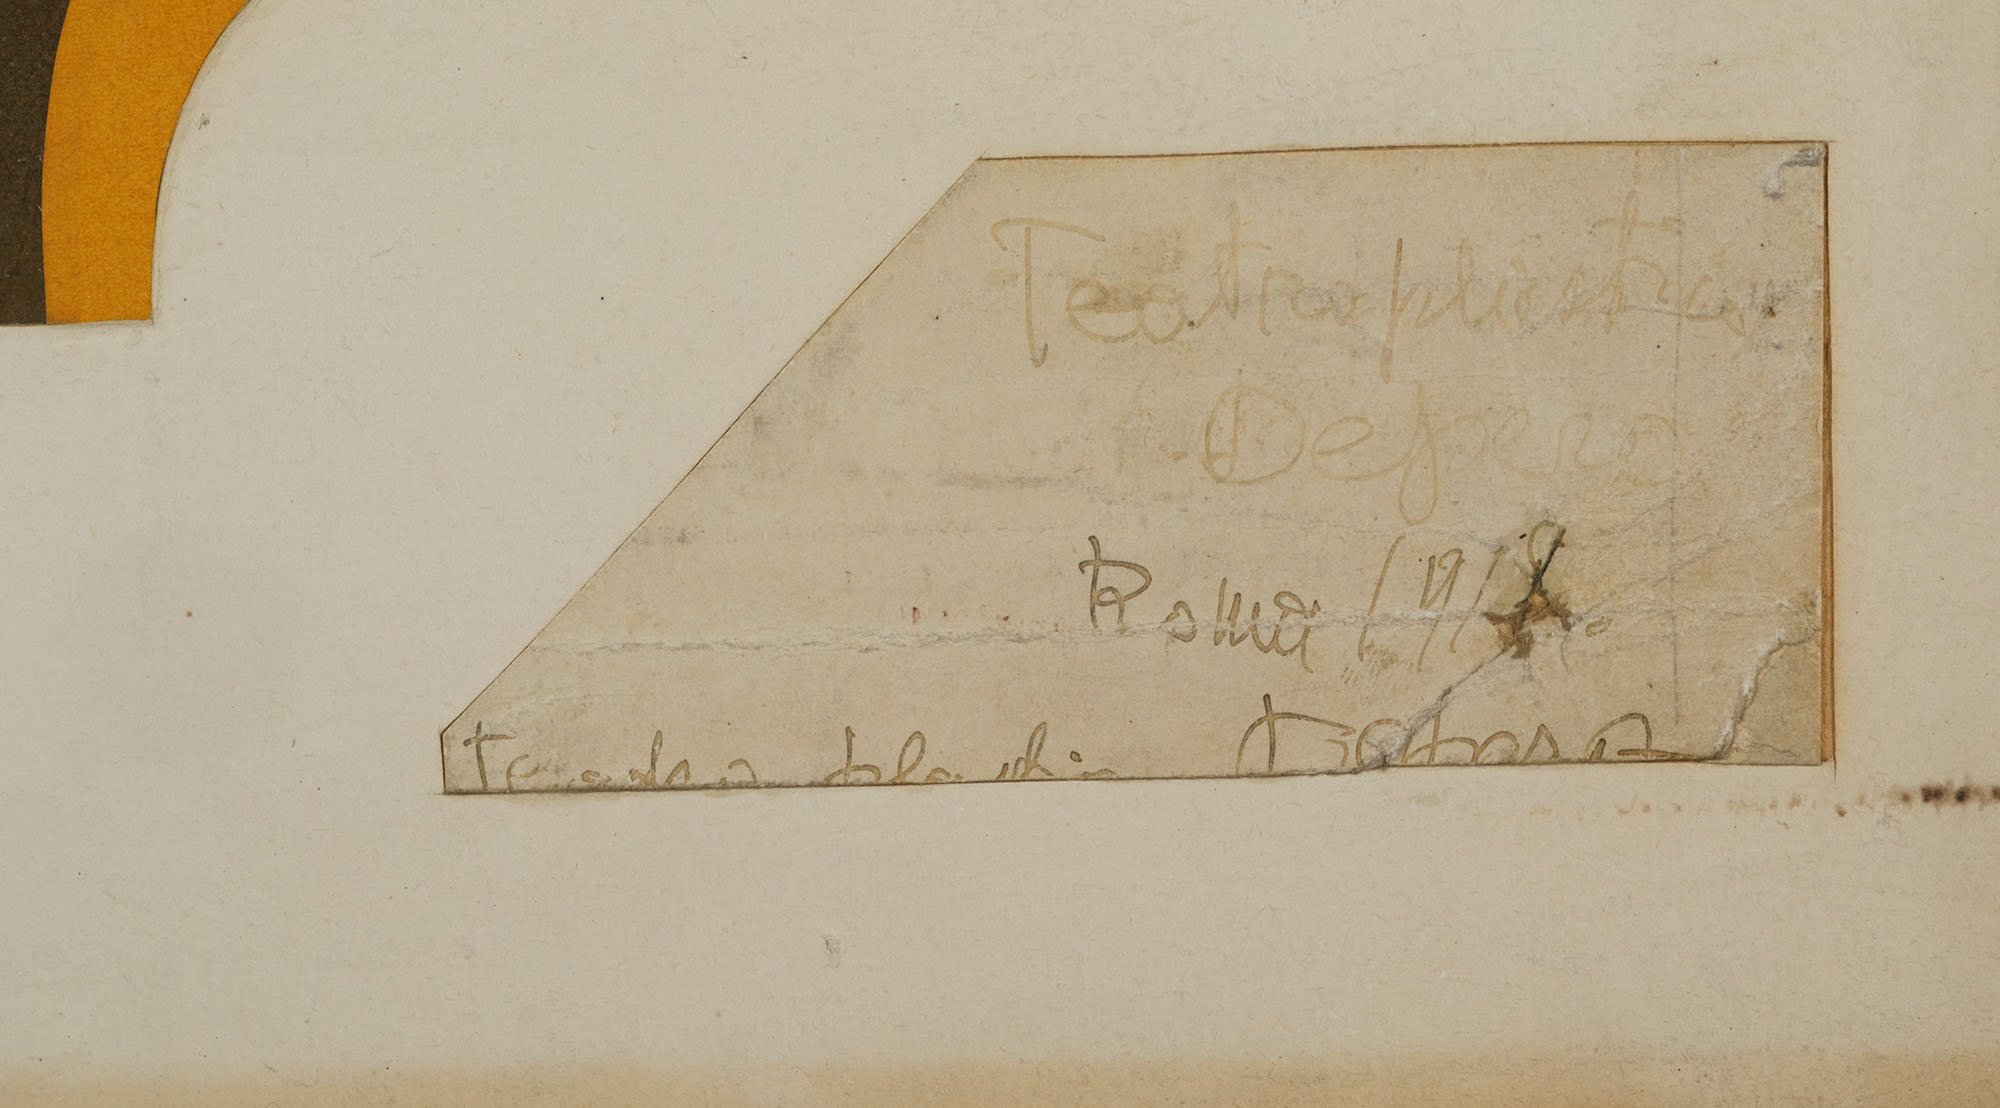 Teatro plastico
Depero
Roma 1918.
teatro plastico Depero